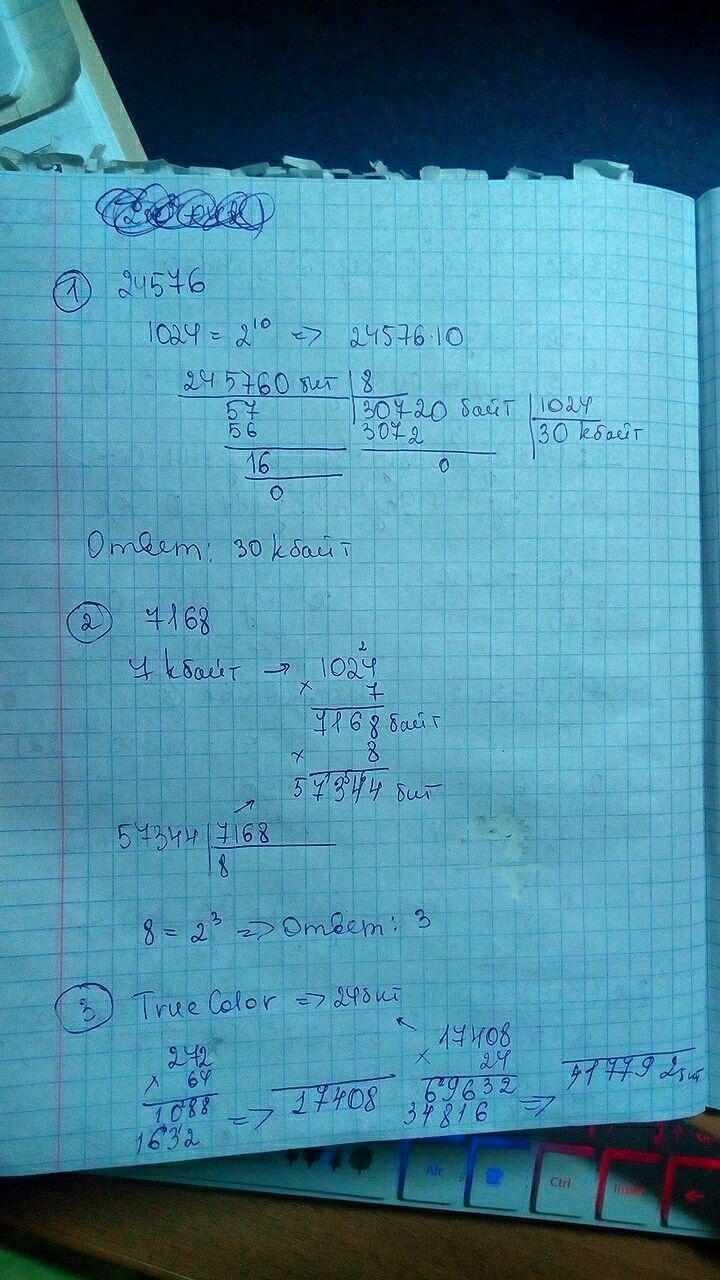 ① 24576
1024 = 2¹⁰ => 24576·10
245760 бит | 8
57 30720 байт | 1024
56 3072 30 кбайт
16 0
0
Ответ: 30 кбайт
② 7168
7 кбайт → 1024
× 7
7168 байт
× 8
57344 бит
57344 | 7168
8
8 = 2³ => Ответ: 3
③ True Color => 24 бит
272 17408
× 64 × 24
1088 => 17408 69632 => 417792 бит
1632 34816
Alt
Ctrl
Insert